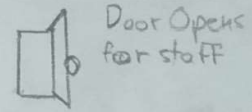 Door Opens
for staff